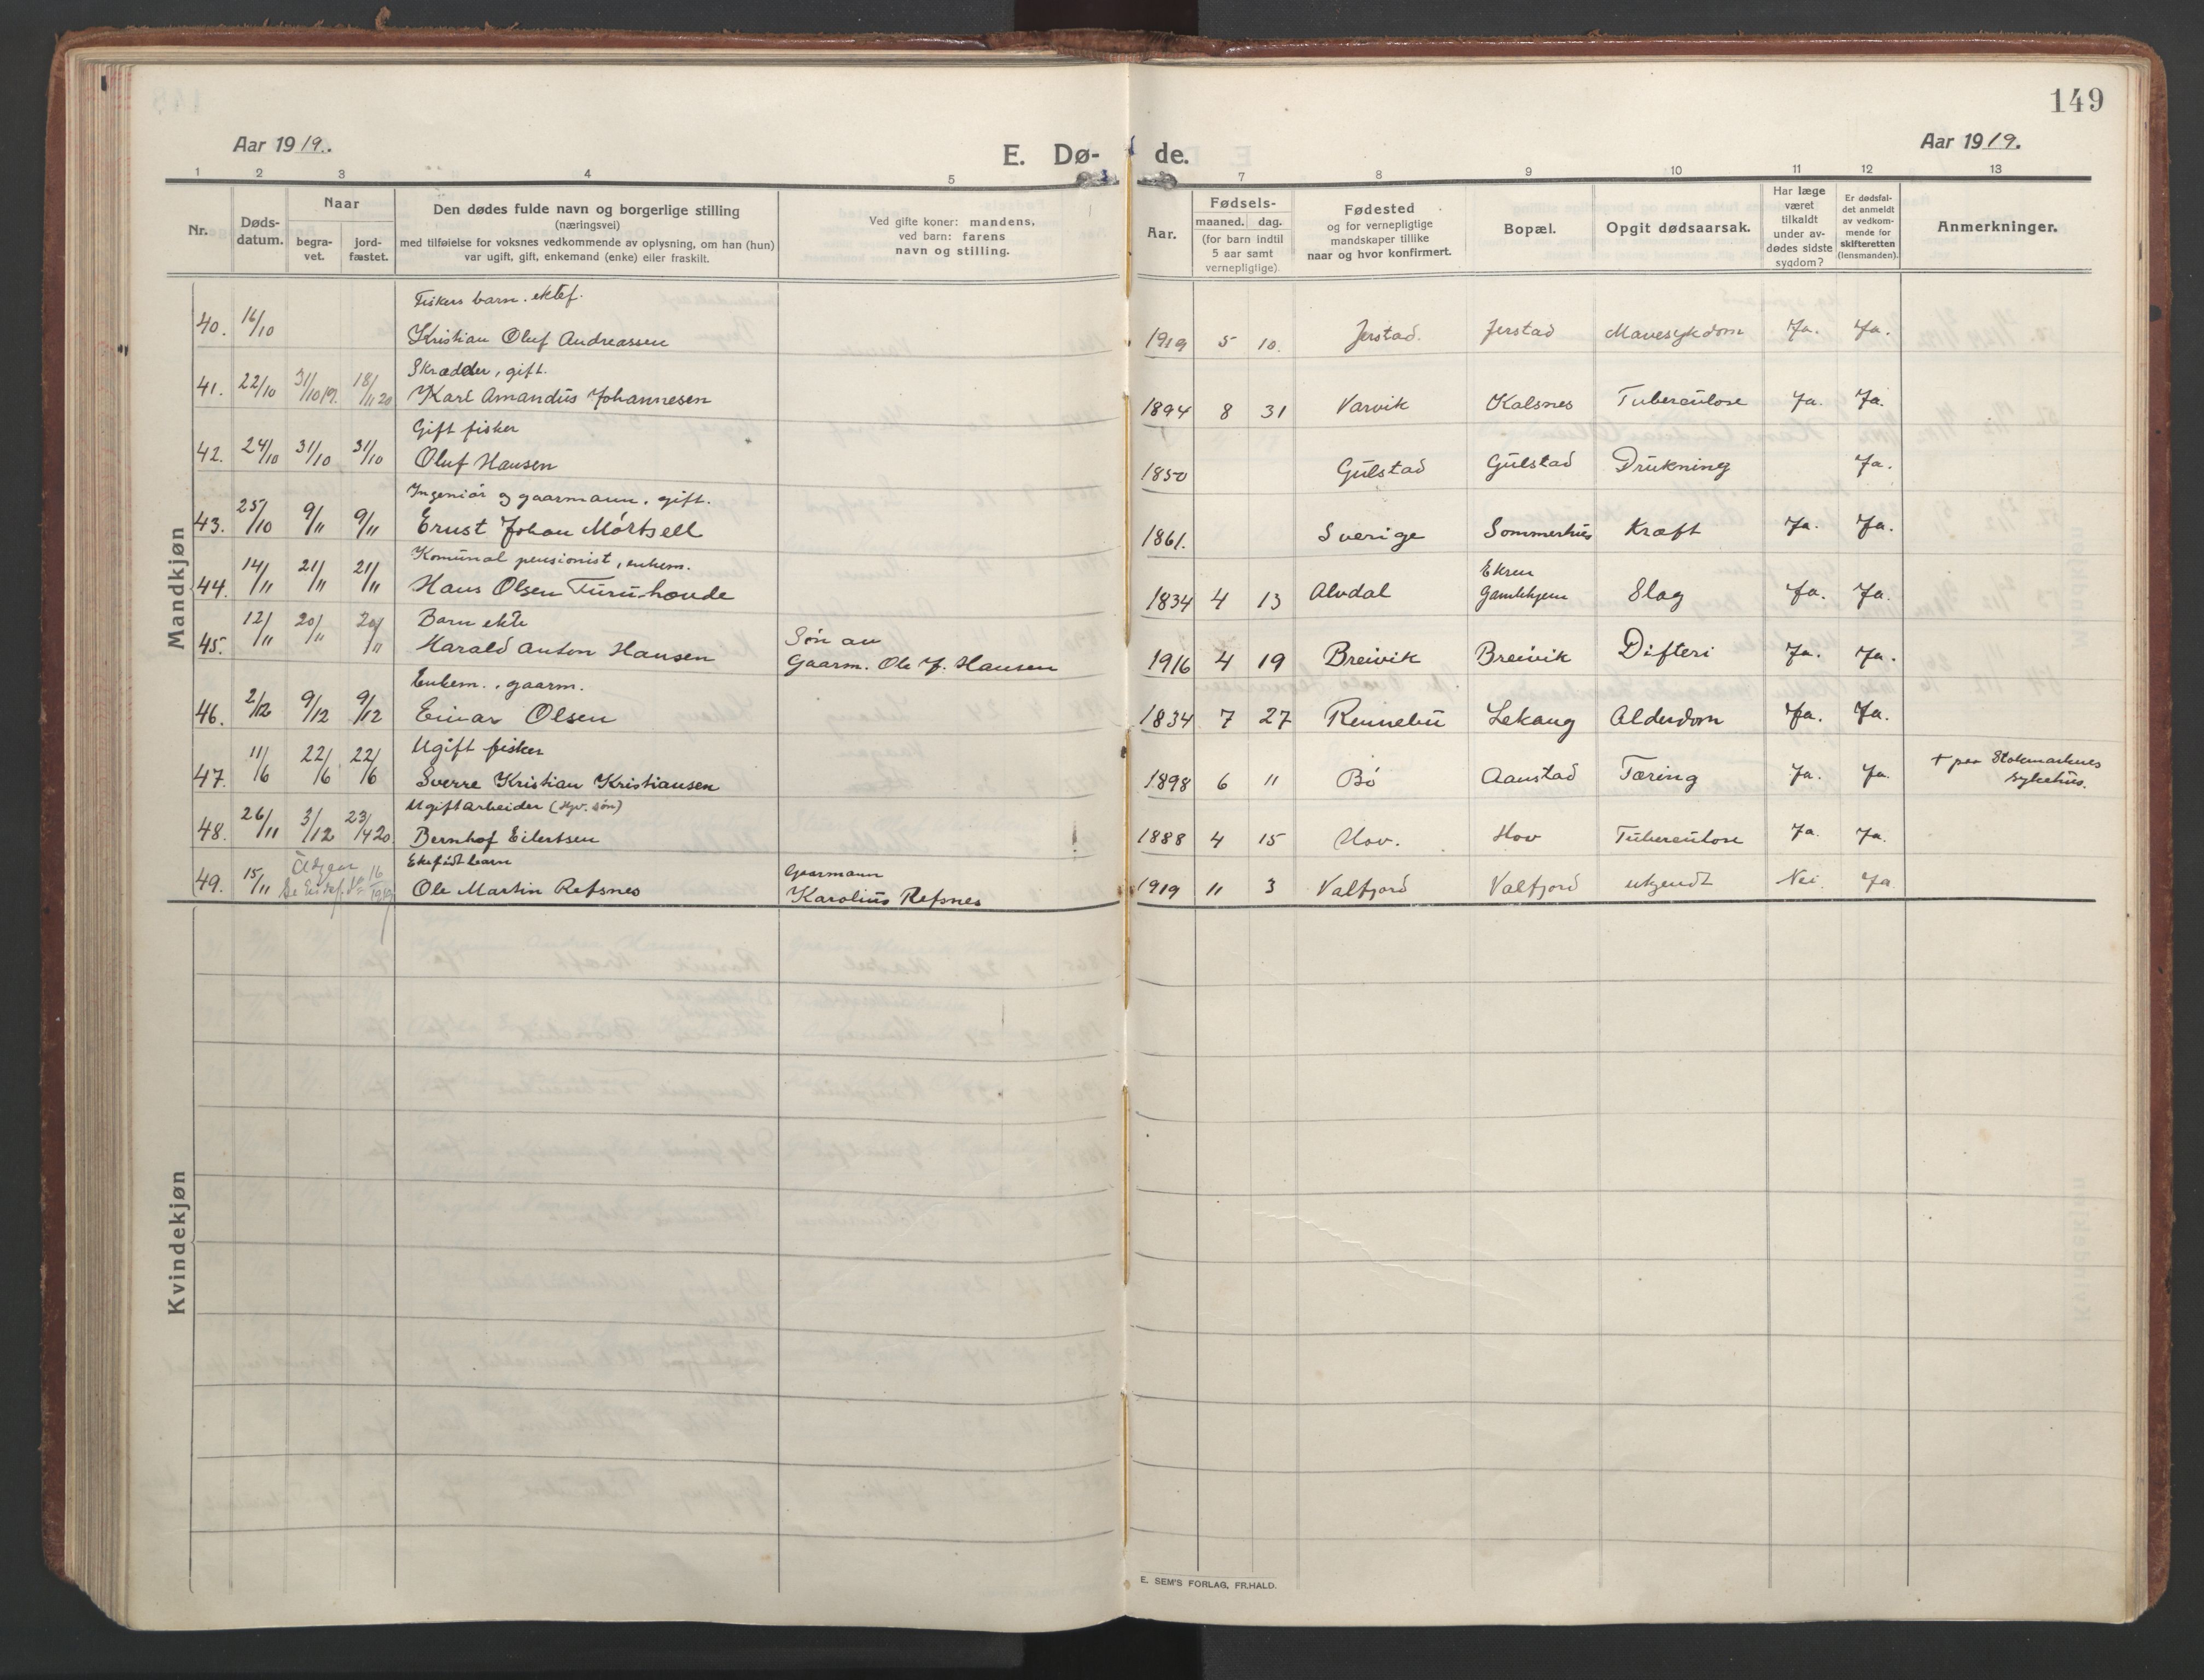 149
Aar 1919.
E. Dø- de.
Aar 1919.
1 2 3 4 5 7 8 9 10 11 12 13
Nr.
Døds-
datum.
Naar
begra-
vet.
jord-
fæstet.
Den dødes fulde navn og borgerlige stilling
(næringsvei)
med tilføielse for voksnes vedkommende av oplysning, om han (hun)
var ugift, gift, enkemand (enke) eller fraskilt.
Ved gifte koner: mandens,
ved barn: farens
navn og stilling.
Aar.
Fødsels-
maaned. dag.
(for barn indtil
5 aar samt
vernepligtige)
Fødested
og for vernepligtige
mandskaper tillike
naar og hvor konfirmert.
Bopæl.
Opgit dødsaarsak.
Har læge
været
tilkaldt
under av-
dødes sidste
sygdom?
Er dødsfal-
det anmeldt
av vedkom-
mende for
skifteretten
(lensmanden).
Anmerkninger.
Mandkjøn
Fiskers barn. ektef.
40. 16/10 Kristian Oluf Andreassen 1919 5 10. Jerstad. Jerstad Mavesykdom Ja. Ja.
Skrædder, gift.
41. 22/10 31/10 19. 18/11 20 Karl Amandus Johannesen 1894 8 31 Varvik Kalsnes Tuberculose Ja. Ja.
Gift fisker
42. 24/10 31/10 31/10 Oluf Hansen 1850 Gulstad Gulstad Drukning Ja.
Ingeniór og gaarmann, gift.
43. 25/10 9/11 9/11 Ernst Johan Mórtsell 1861. Sverige Sommerhus Kræft Ja. Ja.
Komunal pensionist, enkem.
Ekren
44. 14/11 21/11 21/11 Hans Olsen Turuhovde 1834 4 13 Alvdal Gamlehjem Slag Ja. Ja.
Barn ekte Són av
45. 12/11 20/11 20/11 Harald Anton Hansen Gaarm. Ole J. Hansen 1916 4 19 Breivik Breivik Difteri Ja. Ja.
Enkem., gaarm.
46. 2/12 9/12 9/12 Einar Olsen 1834 7 27 Rennebu Lekang Alderdom Ja. Ja.
Ugift fisker
47. 11/6 22/6 22/6 Sverre Kristian Kristiansen 1898 6 11 Bó Aanstad Tæring Ja. Ja. + paa Stokmarknes
sykehus.
Ugift arbeider (Hjv. són)
48. 26/11 3/12 23/4 20 Bernhof Eilertsen 1888 4 15 Hov. Hov Tuberculose Ja. Ja.
Ekefódt barn Gaarmann
49. 15/11 Utgaar Se 16 Ole Martin Refsnes Karolius Refsnes 1919 11 3 Valfjord Valfjord ukjendt Nei. Ja
Kvindekjøn
E. SEM'S FORLAG, FR.HALD.